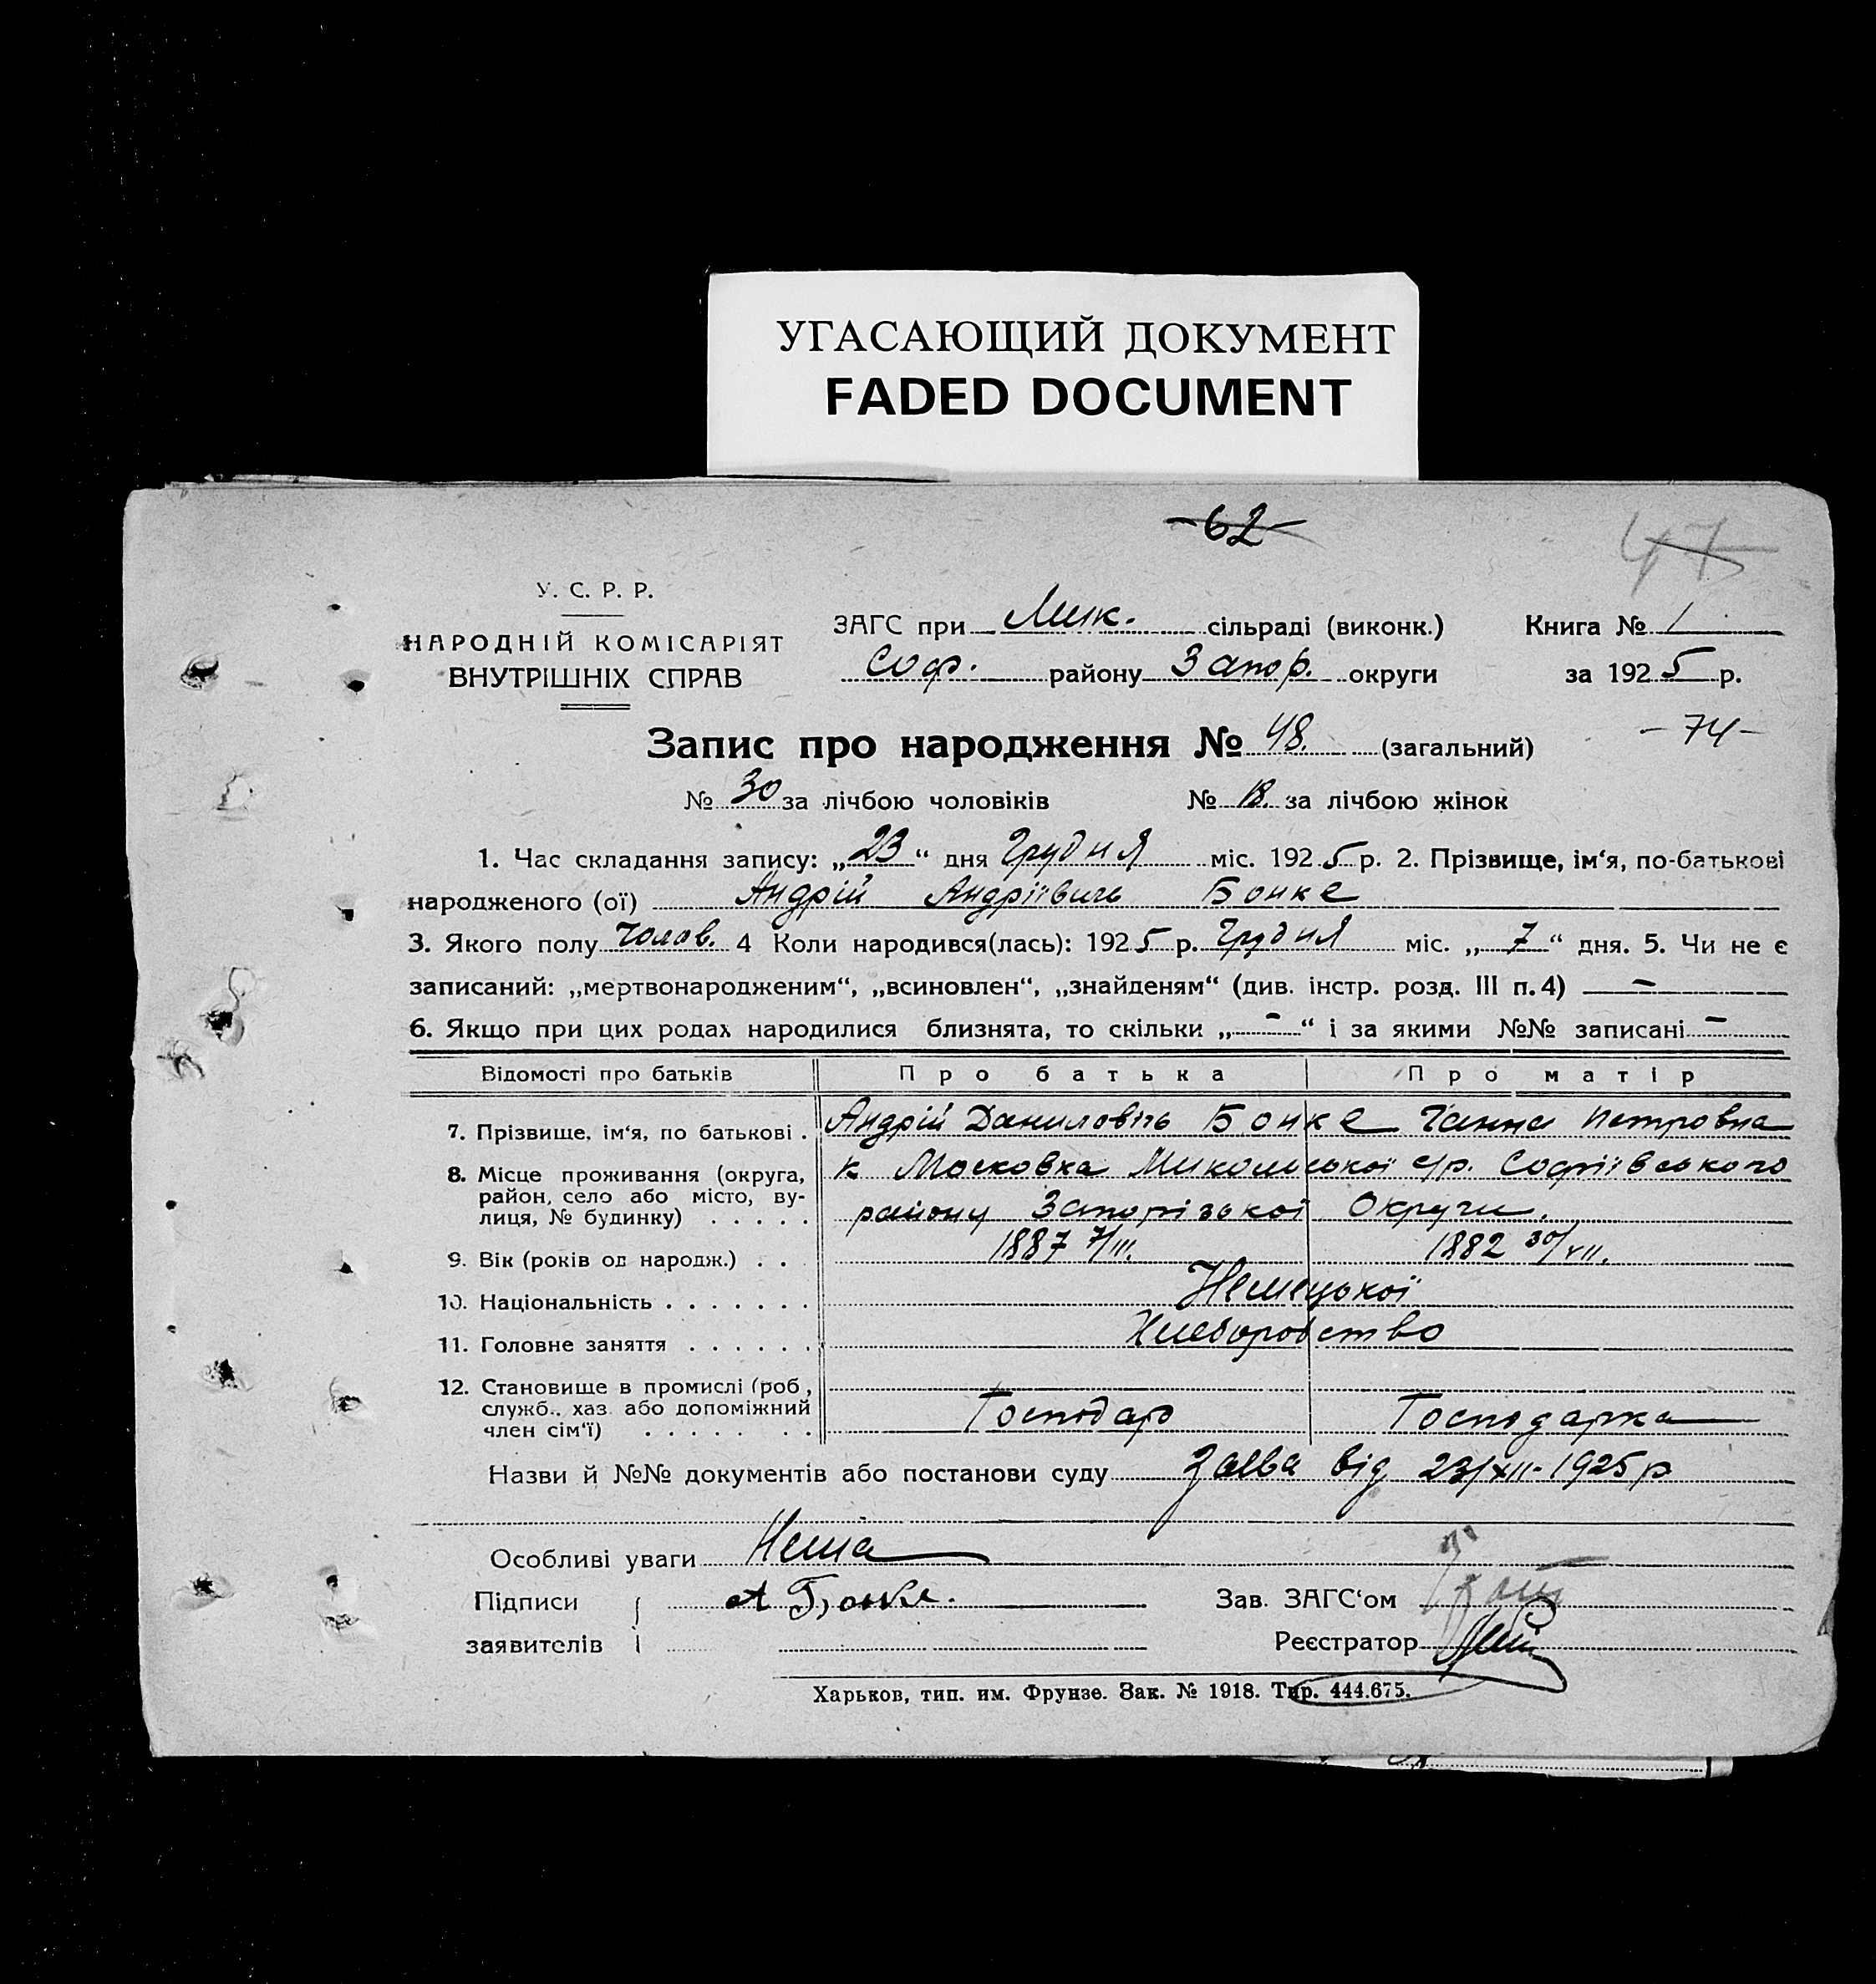 УГАСАЮЩИЙ ДОКУМЕНТ
FADED DOCUMENT
-62-
У. С. Р. Р.
НАРОДНІЙ КОМІСАРІЯТ
ВНУТРІШНІХ СПРАВ
ЗАГС при Мик. сільраді (виконк.) Книга № 1
Соф. району Запор. округи за 1925 р.
Запис про народження № 48. (загальний) - 74 -
№ 30 за лічбою чоловіків № 18. за лічбою жінок
1. Час складання запису: „23“ дня Грудня міс. 1925 р. 2. Прізвище, ім‘я, по-батькові
народженого (ої) Андрій Андріївичь Бонке
3. Якого полу Чолов. 4 Коли народився(лась): 1925 р. Грудня міс. „7“ дня. 5. Чи не є
записаний: „мертвонародженим“, „всиновлен“, „знайденям“ (див. інстр. розд. III п. 4) —
6. Якщо при цих родах народилися близнята, то скільки „-“ і за якими №№ записані -
Відомості про батьків Про батька Про матір
7. Прізвище, ім‘я, по батькові . Андрій Даниловічь Бонке Ганна Петровна
8. Місце проживання (округа, к Московка Микольської с/р. Софіївського
район, село або місто, ву-
лиця, № будинку) . . . . . району Запорізької Округи.
9. Вік (років од народж.) . . 1887 7/III. 1882 30/VII.
10. Національність . . . . . . . Немецької
11. Головне заняття . . . . . . Хлеборобство
12. Становище в промислі (роб,
служб., хаз. або допоміжний
член сім‘ї) . . . . . . . Господарь Господарка
Назви й №№ документів або постанови суду Заява від 23/XII-1925 р
Особливі уваги Нема
Підписи А Бонке. Зав. ЗАГС‘ом
заявителів Реєстратор
Харьков, тип. им. Фрунзе. Зак. № 1918. Тир. 444.675.